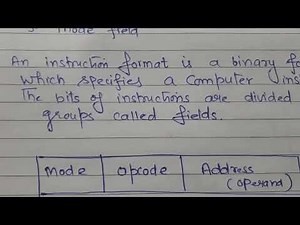 mode field
An instruction format is a binary fo
which specifies a computer ins
The bits of instructions are divided
groups called fields.
Mode Opcode Address
(operand)